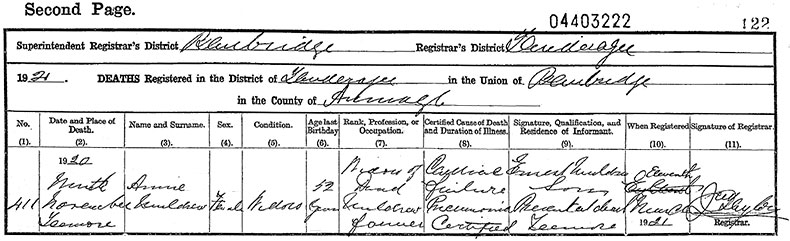 Second Page.
04403222
122
Superintendent Registrar's District Banbridge Registrar's District Tanderagee
1921. DEATHS Registered in the District of Tanderagee in the Union of Banbridge
in the County of Armagh
No. Date and Place of Death. Name and Surname. Sex. Condition. Age last Birthday Rank, Profession, or Occupation. Certified Cause of Death and Duration of Illness. Signature, Qualification, and Residence of Informant. When Registered Signature of Registrar.
(1). (2). (3). (4). (5). (6). (7). (8). (9). (10). (11).
1920
Ninth
November
Annie
Widow
52
Widow of
Cardiac
Failure
Pneumonia
Certified
Ernest
Son
Present at death
Eleventh
March
1921
Farmer
411
Registrar.